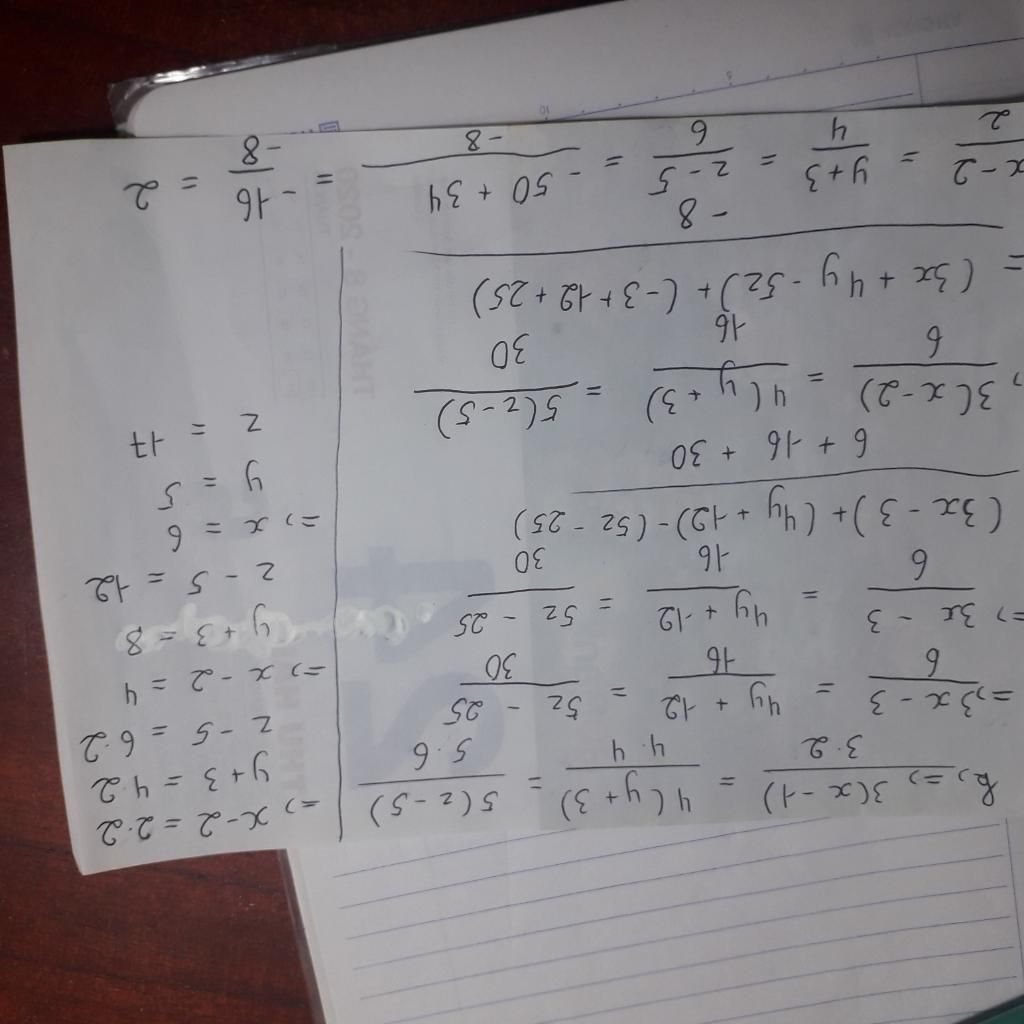 => 3(x-1) / 3.2 = 4(y+3) / 4.4 = 5(z-5) / 5.6
=> 3x - 3 / 6 = 4y + 12 / 16 = 5z - 25 / 30
=> 3x - 3 / 6 = 4y + 12 / 16 = 5z - 25 / 30
(3x - 3) + (4y + 12) - (5z - 25)
6 + 16 + 30
3(x-2) / 6 = 4(y+3) / 16 = 5(z-5) / 30
= (3x + 4y - 5z) + (-3 + 12 + 25)
-8
x-2 / 2 = y+3 / 4 = z-5 / 6 = -50 + 34 / -8 = -16 / -8 = 2
=> x-2 = 2.2
y+3 = 4.2
z-5 = 6.2
=> x-2 = 4
y+3 = 8
z-5 = 12
=> x = 6
y = 5
z = 17
THÁNG 8 - 2020